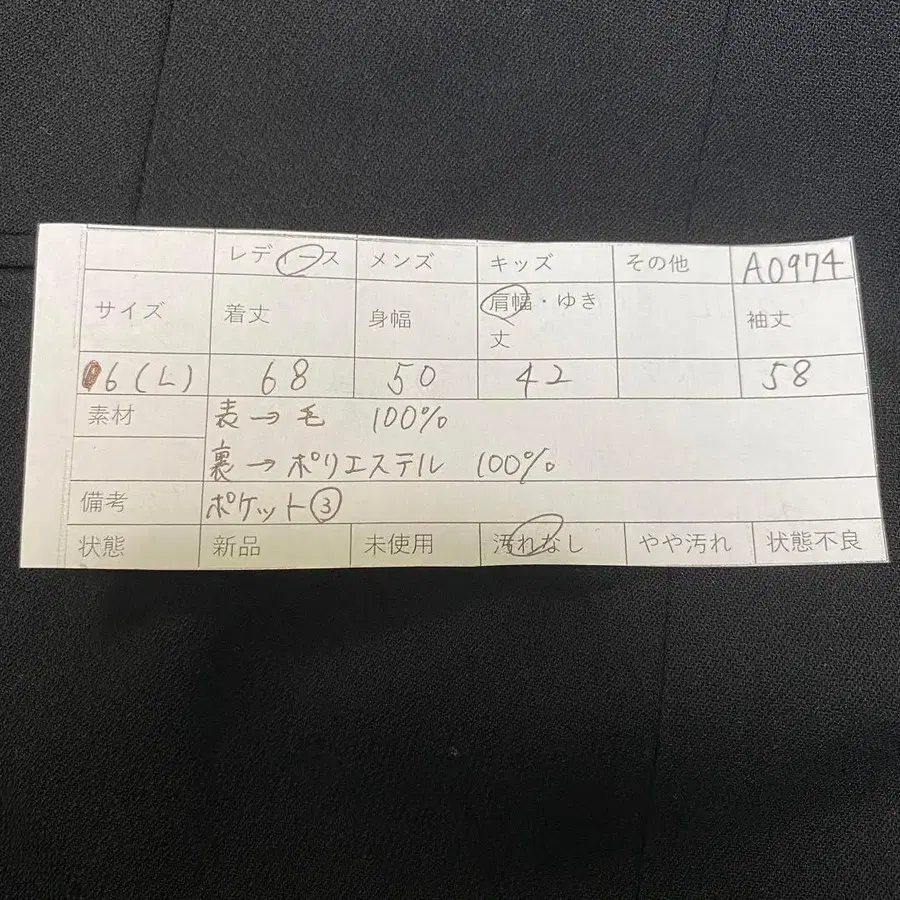 レディース メンズ キッズ その他 A0974
サイズ 着丈 身幅 肩幅・ゆき丈 袖丈
6(L) 68 50 42 58
素材 表→毛 100%
裏→ポリエステル 100%
備考 ポケット③
状態 新品 未使用 汚れなし やや汚れ 状態不良